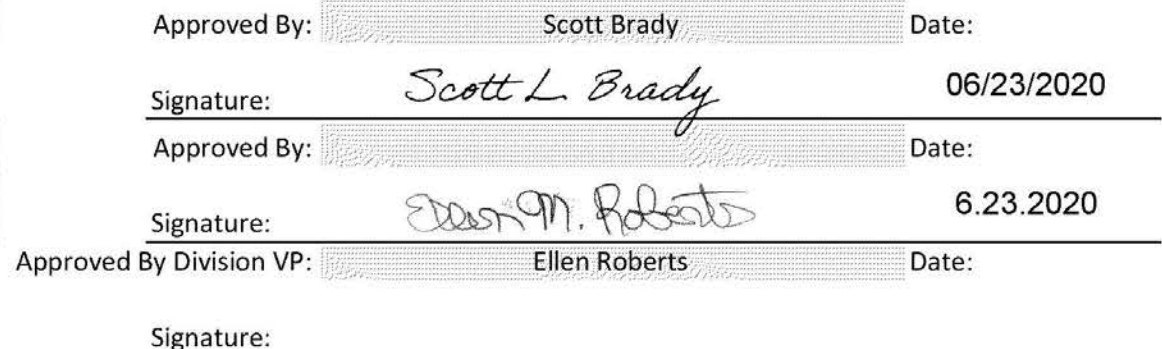 Approved By: Scott Brady Date:
Signature: Scott L Brady 06/23/2020
Approved By: Date:
Signature: Ellen M. Roberts 6.23.2020
Approved By Division VP: Ellen Roberts Date:
Signature: